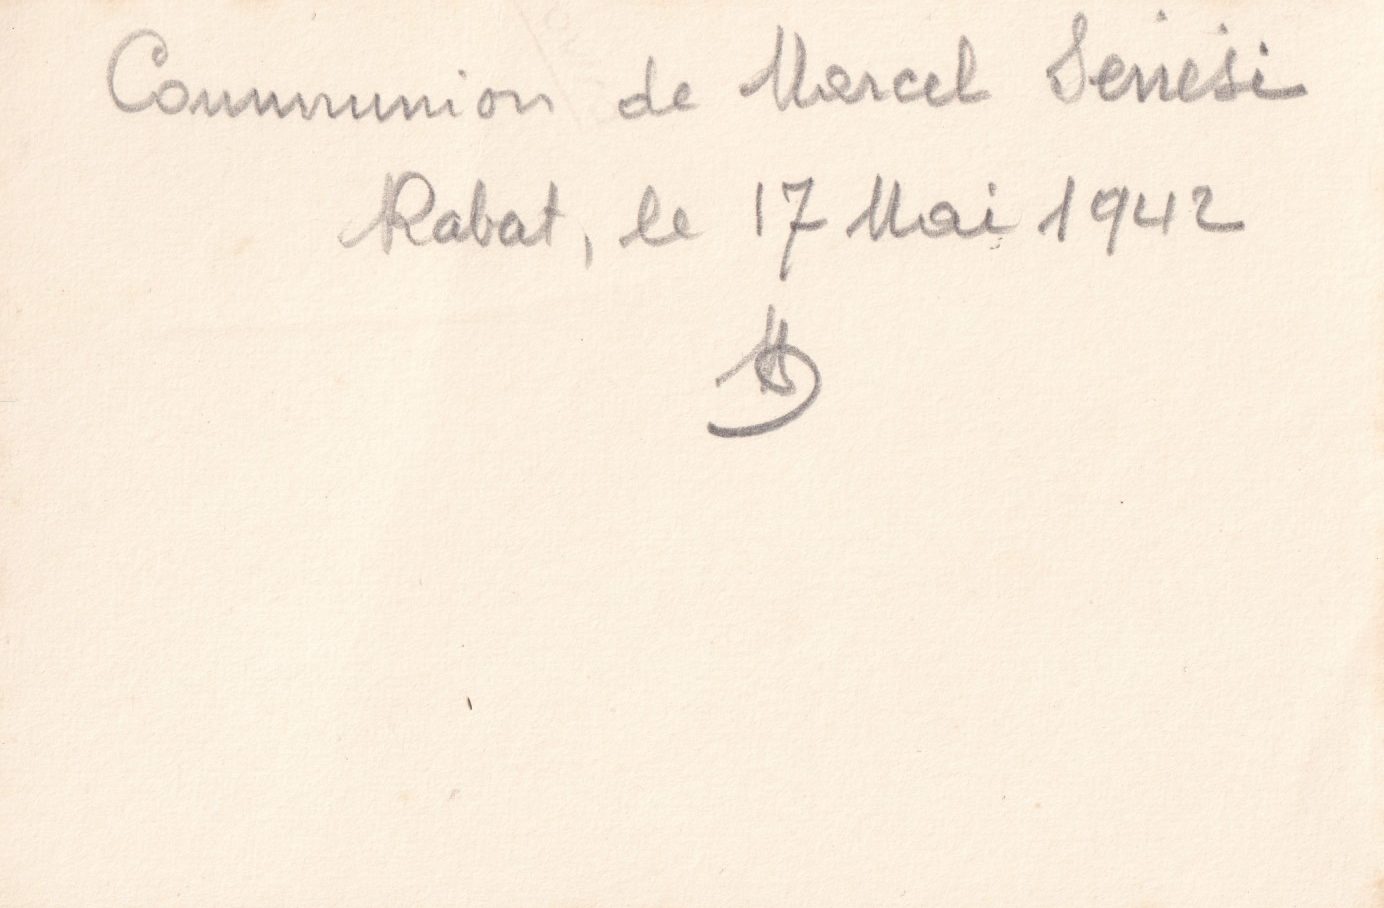 Communion de Marcel Senesi
Rabat, le 17 Mai 1942